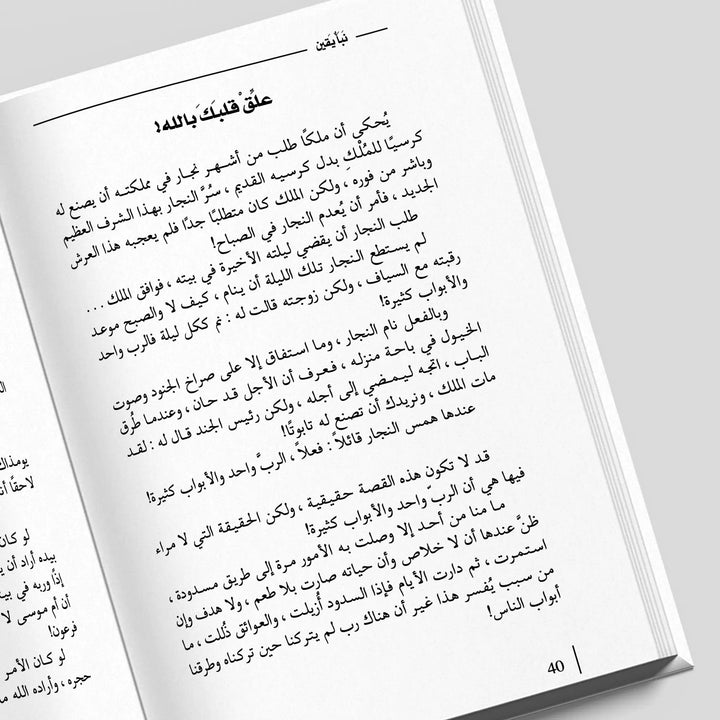 نَبَأ يَقين
علِّقْ قلبَكَ بالله!
يُحكى أن ملكًا طلب من أشهر نجار في مملكته أن يصنع له
كرسيًا للمُلْكِ بدل كرسيه القديم ، سُرَّ النجار بهذا الشرف العظيم
وباشر من فوره ، ولكن الملك كان متطلبًا جدًا فلم يعجبه هذا العرش
الجديد ، فأمر أن يُعدم النجار في الصباح!
طلب النجار أن يقضي ليلته الأخيرة في بيته ، فوافق الملك ...
لم يستطع النجار تلك الليلة أن ينام ، كيف لا والصبح موعد
رقبته مع السياف ، ولكن زوجته قالت له : نم ككل ليلة فالرب واحد
والأبواب كثيرة!
وبالفعل نام النجار ، وما استفاق إلا على صراخ الجنود وصوت
الخيول في باحة منزله ، فعرف أن الأجل قد حان ، وعندما طُرق
الباب ، اتجه ليمضي إلى أجله ، ولكن رئيس الجند قال له : لقد
مات الملك ، ونريدك أن تصنع له تابوتًا!
عندها همس النجار قائلاً : فعلاً ، الربّ واحد والأبواب كثيرة!
قد لا تكون هذه القصة حقيقية ، ولكن الحقيقة التي لا مراء
فيها هي أن الربّ واحد والأبواب كثيرة!
ما منا من أحد إلا وصلت به الأمور مرة إلى طريق مسدودة ،
ظنَّ عندها أن لا خلاص وأن حياته صارت بلا طعم ، ولا هدف وإن
استمرت ، ثم دارت الأيام فإذا السدود أُزيلت ، والعوائق ذُللت ، ما
من سبب يُفسر هذا غير أن هناك رب لم يتركنا حين تركناه وطرقنا
أبواب الناس!
40
يومذاك
لاحقًا
لو كان
بيده أراد أن
إذًا وربه في
أن أم موسى لا
فرعون!
لو كان الأمر
حجره ، وأراده الله